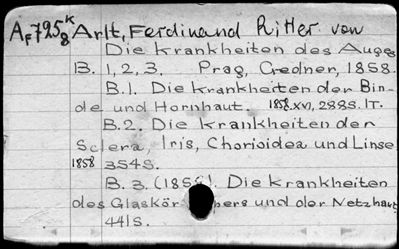 Af 7258 K Arlt, Ferdinand Ritter von
Die Krankheiten des Auges
B. 1, 2, 3. Prag, Credner, 1858.
B. 1. Die Krankheiten der Bin-
de und Hornhaut. 1858. XVI, 288S. 1T.
B. 2. Die Krankheiten der
Sclera, Iris, Chorioidea und Linse
1858 354S.
B. 3. (1858). Die Krankheiten
des Glaskör pers und der Netzhaut
441S.